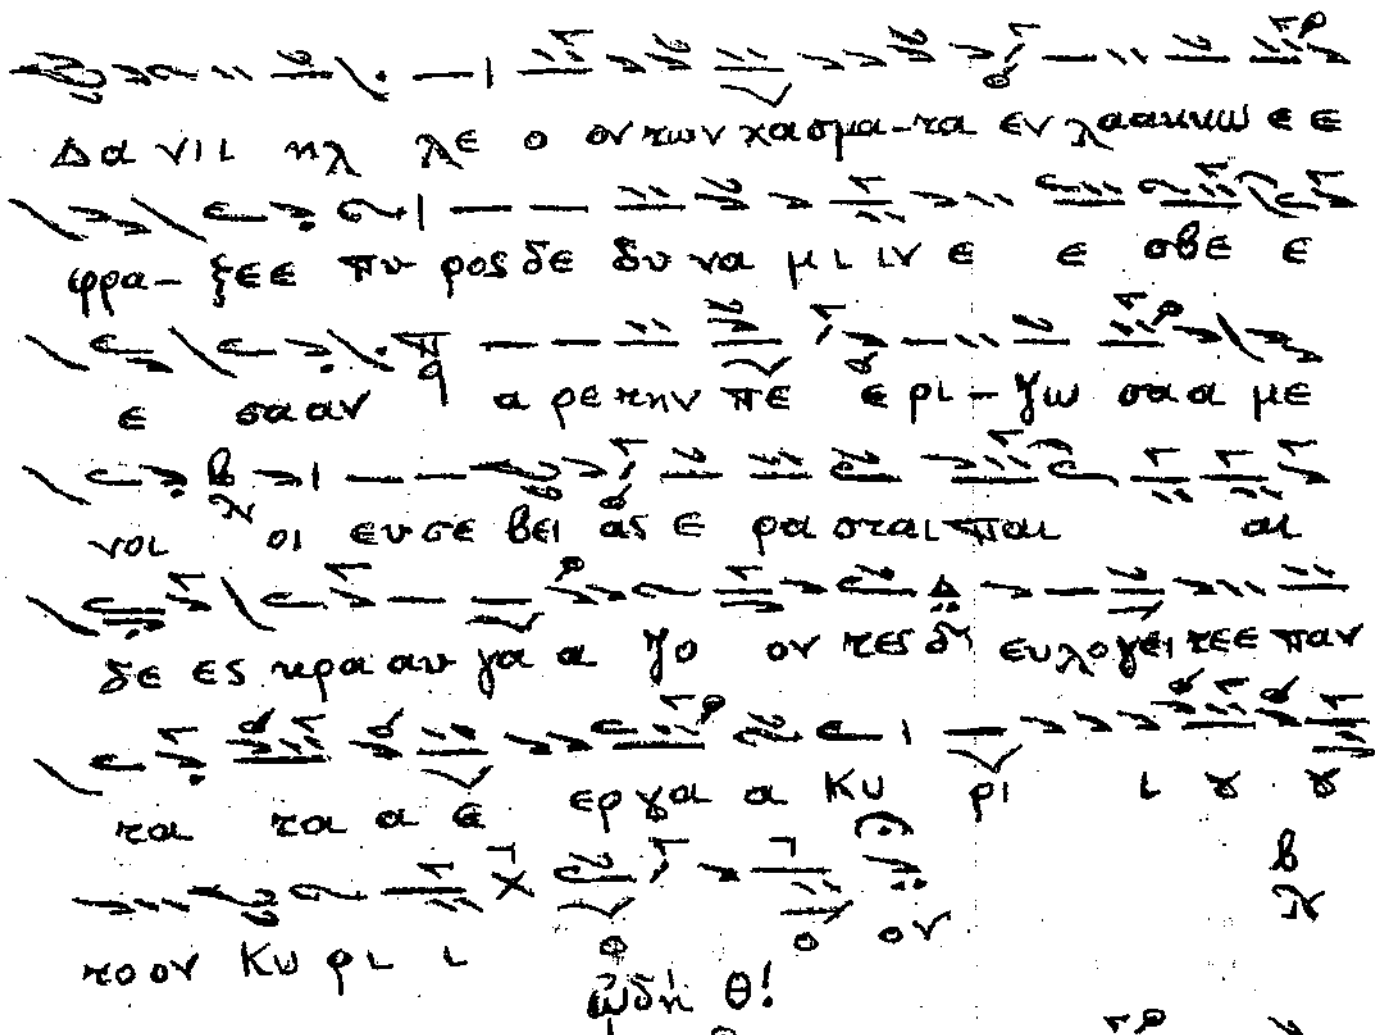 Δα νιι ηλ λε ο ον των χασμα-τα εν λαακκω ε ε
φρα-ξεε πυ ροςδε δυ να μι ιν ε ε σβε ε
ε σααν α ρετην πε ε ρι-ζω σαα με
νοι οι ευσε βει ας ε ρα σται παι αι
δε ες κρα αυ γα α ζο ον τες δ ευλογειτεε παν
τα τα α ε εργα α Κυ ρι ι ȣ ȣ
το ον Κυ ρι ι ο ο ον
ᾠδή θ!